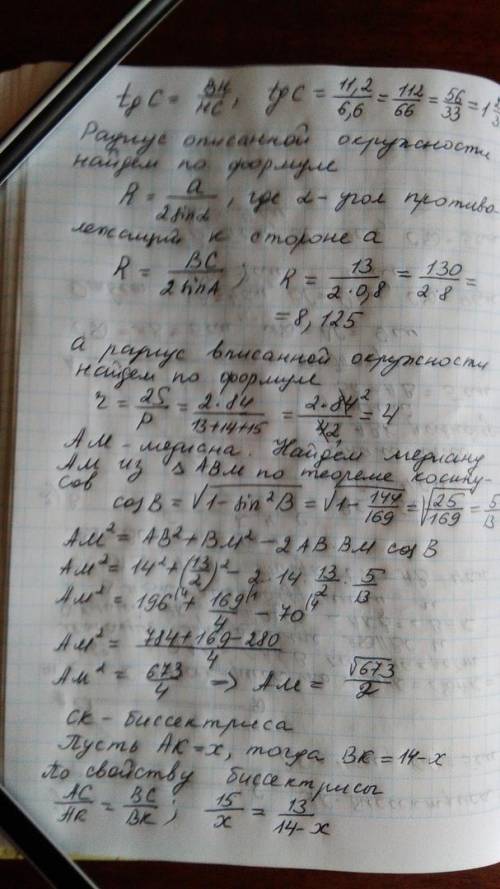 tg C = BH/HC; tg C = 11,2/6,6 = 112/66 = 56/33 = 1
Радиус описанной окружности
найдем по формуле
R = a/2sinα, где α - угол противо
лежащий к стороне a
R = BC/2sinA; R = 13/2·0,8 = 130/2·8 =
= 8,125
а рариус вписанной окружности
найдем по формуле
r = 2S/P = 2·84/13+14+15 = 2·84²/42 = 4
AM - медиана. Найдем медиану
AM из △ABM по теореме косину-
сов
cos B = √1-sin²B = √1-144/169 = √25/169 = 5/13
AM² = AB² + BM² - 2 AB BM cos B
AM² = 14² + (13/2)² - 2·14·13/2·5/13
AM² = 196⁽⁴ + 169⁽¹/4 - 70⁽⁴
AM² = 784+169-280/4
AM² = 673/4 => AM = √673/2
CK - биссектриса
Пусть AK = x, тогда BK = 14-x
По свойству биссектрисы
AC/AK = BC/BK; 15/x = 13/14-x